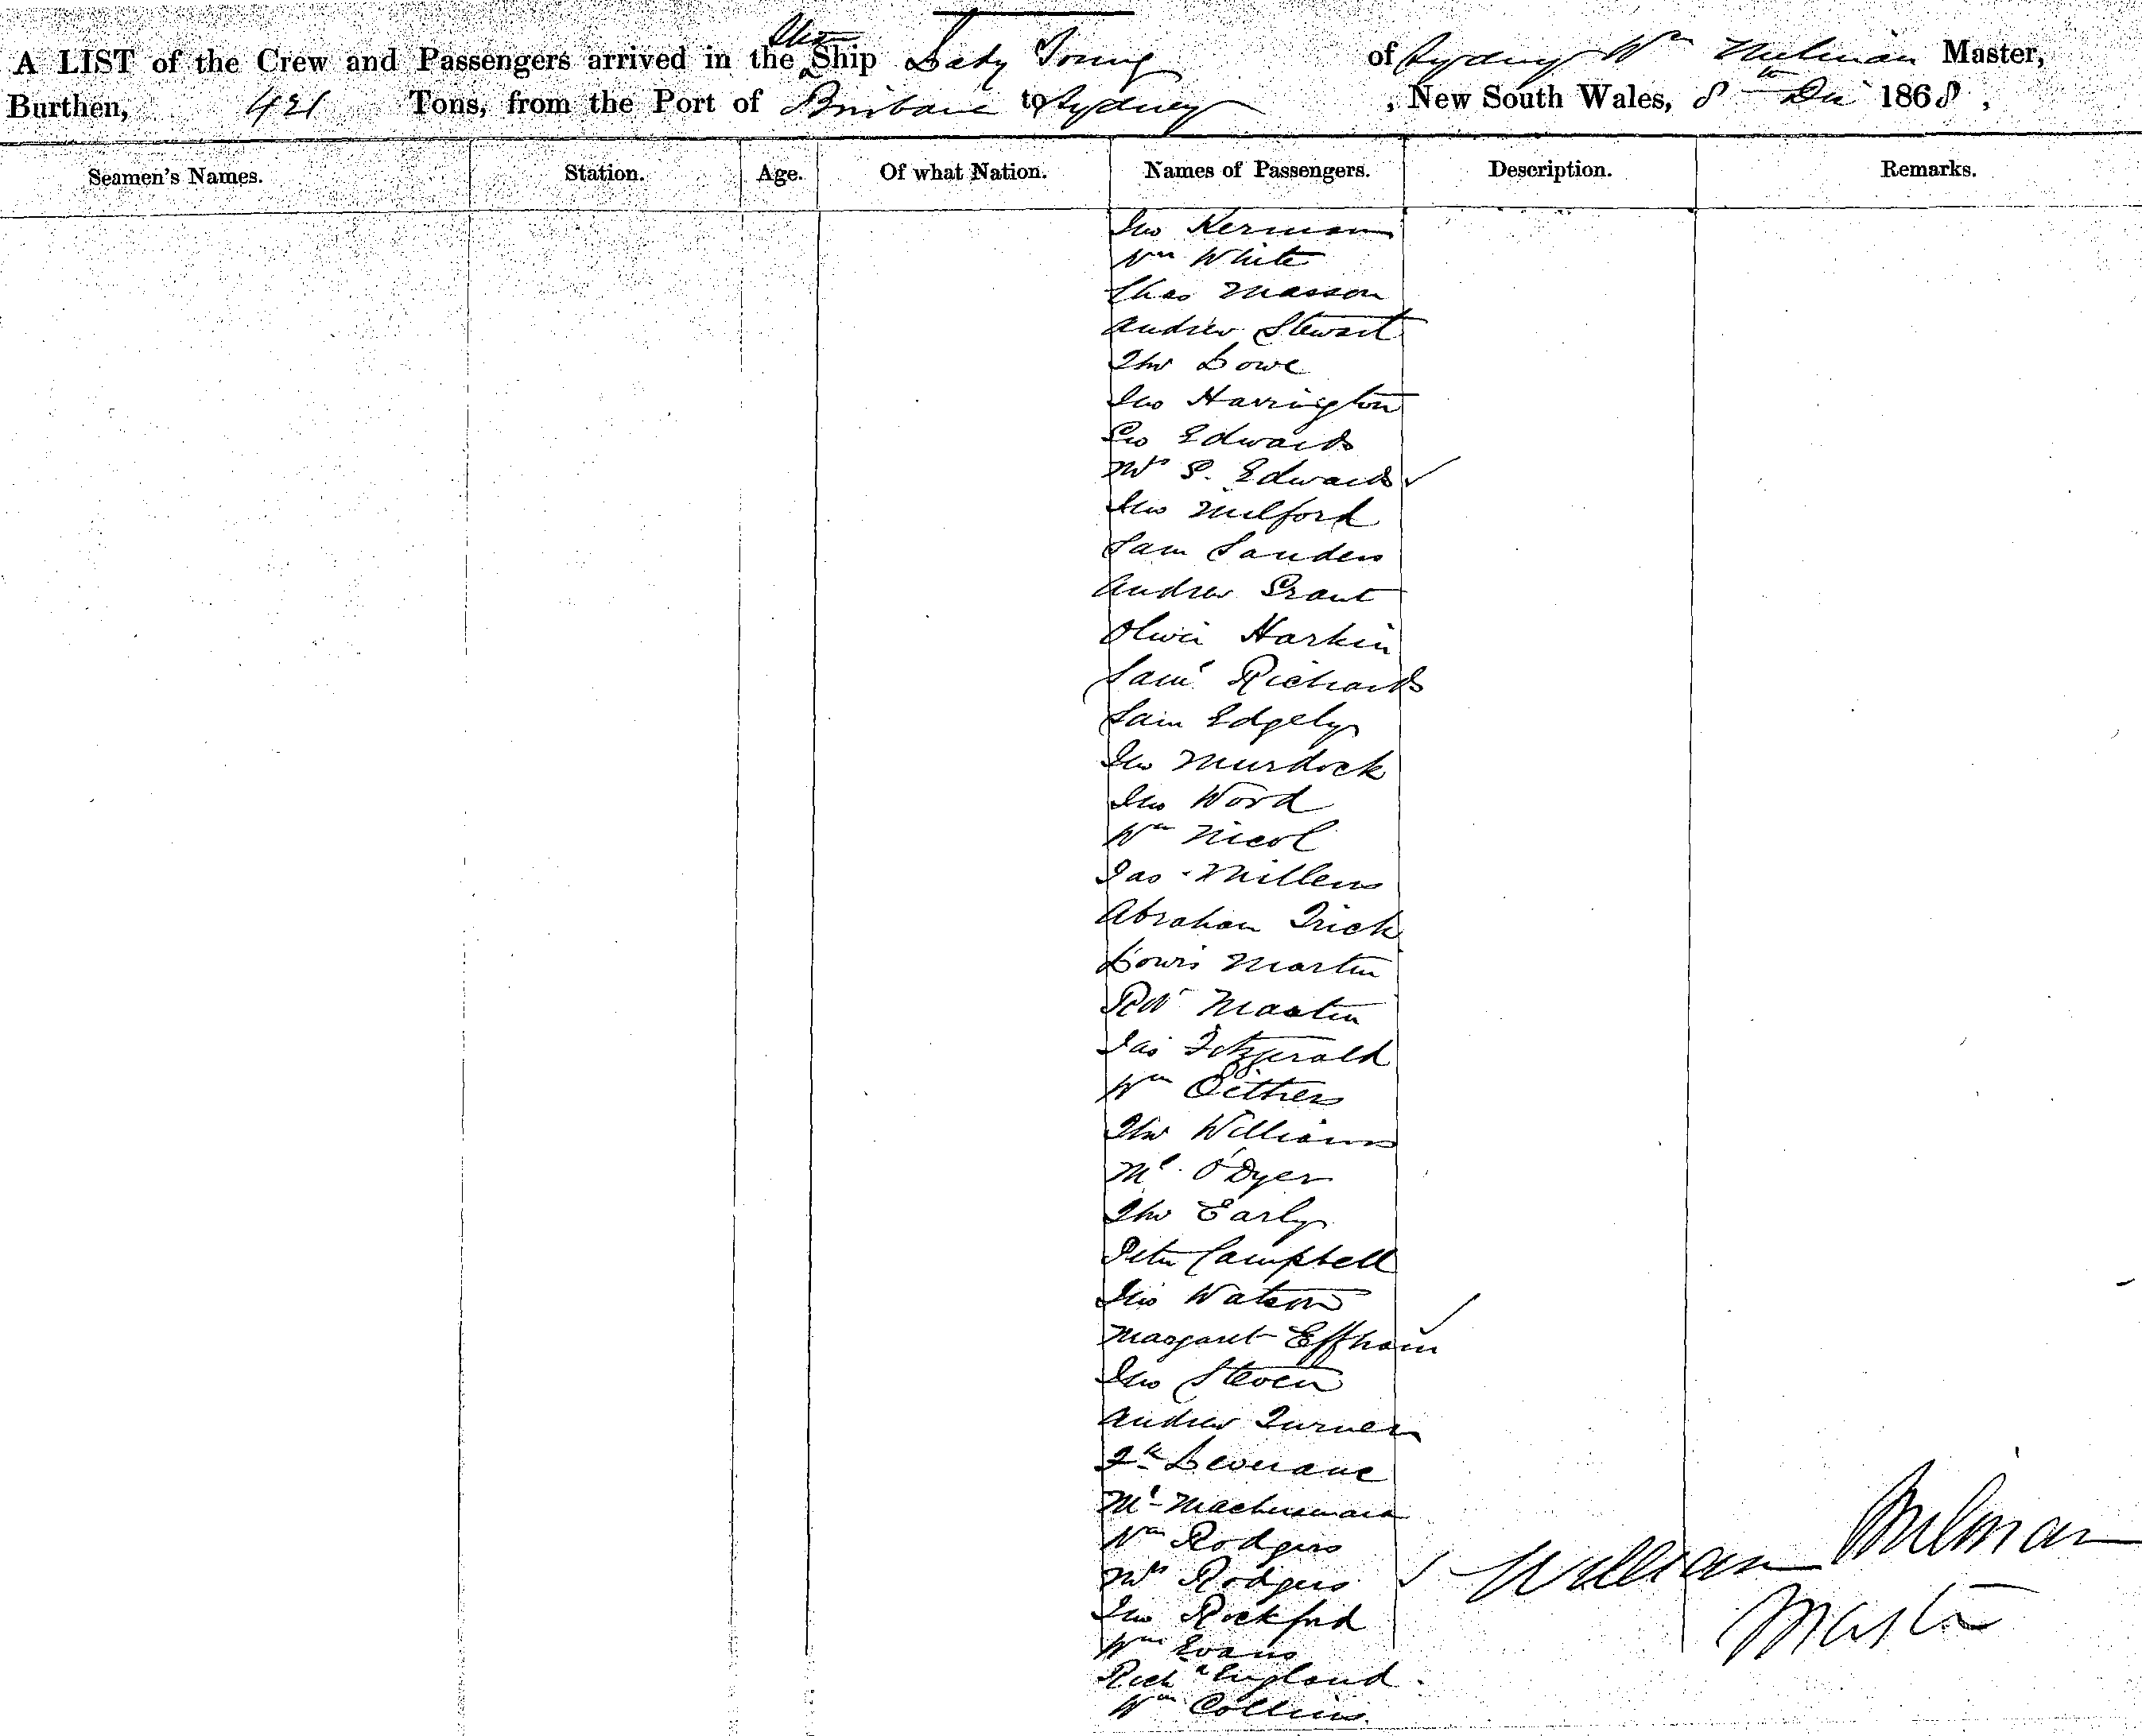 A LIST of the Crew and Passengers arrived in the Ship Lady Young of Sydney Wm Milman Master,
Burthen, 421 Tons, from the Port of Brisbane to Sydney, New South Wales, 8th Dec 1868,
Seamen's Names. Station. Age. Of what Nation. Names of Passengers. Description. Remarks.
Jno Kerman
Wm White
Chas Masson
Andrew Stewart
Thos Lowe
Jno Harrington
Geo Edwards
Mrs G. Edwards
Jno Milford
Sam Sanders
Andrew Grant
Oliver Harkin
Saml Richards
Sam Edgely
Jno Murdock
Jno Word
Wm Nicol
Jas Millens
Abraham Trick
Louis Martin
Robt Martin
Jas Fitzgerald
Wm
Thos Williams
Ml O'Dyer
Thos Early
Peter Campbell
Jno Watson
Margaret Effham
Jno Steven
Andrew Turner
Fk Deverane
Ml
Wm Rodgers
Mrs Rodgers
Jno Rockford
Wm Evans
Richd England
Wm Collins
William Milman
Master